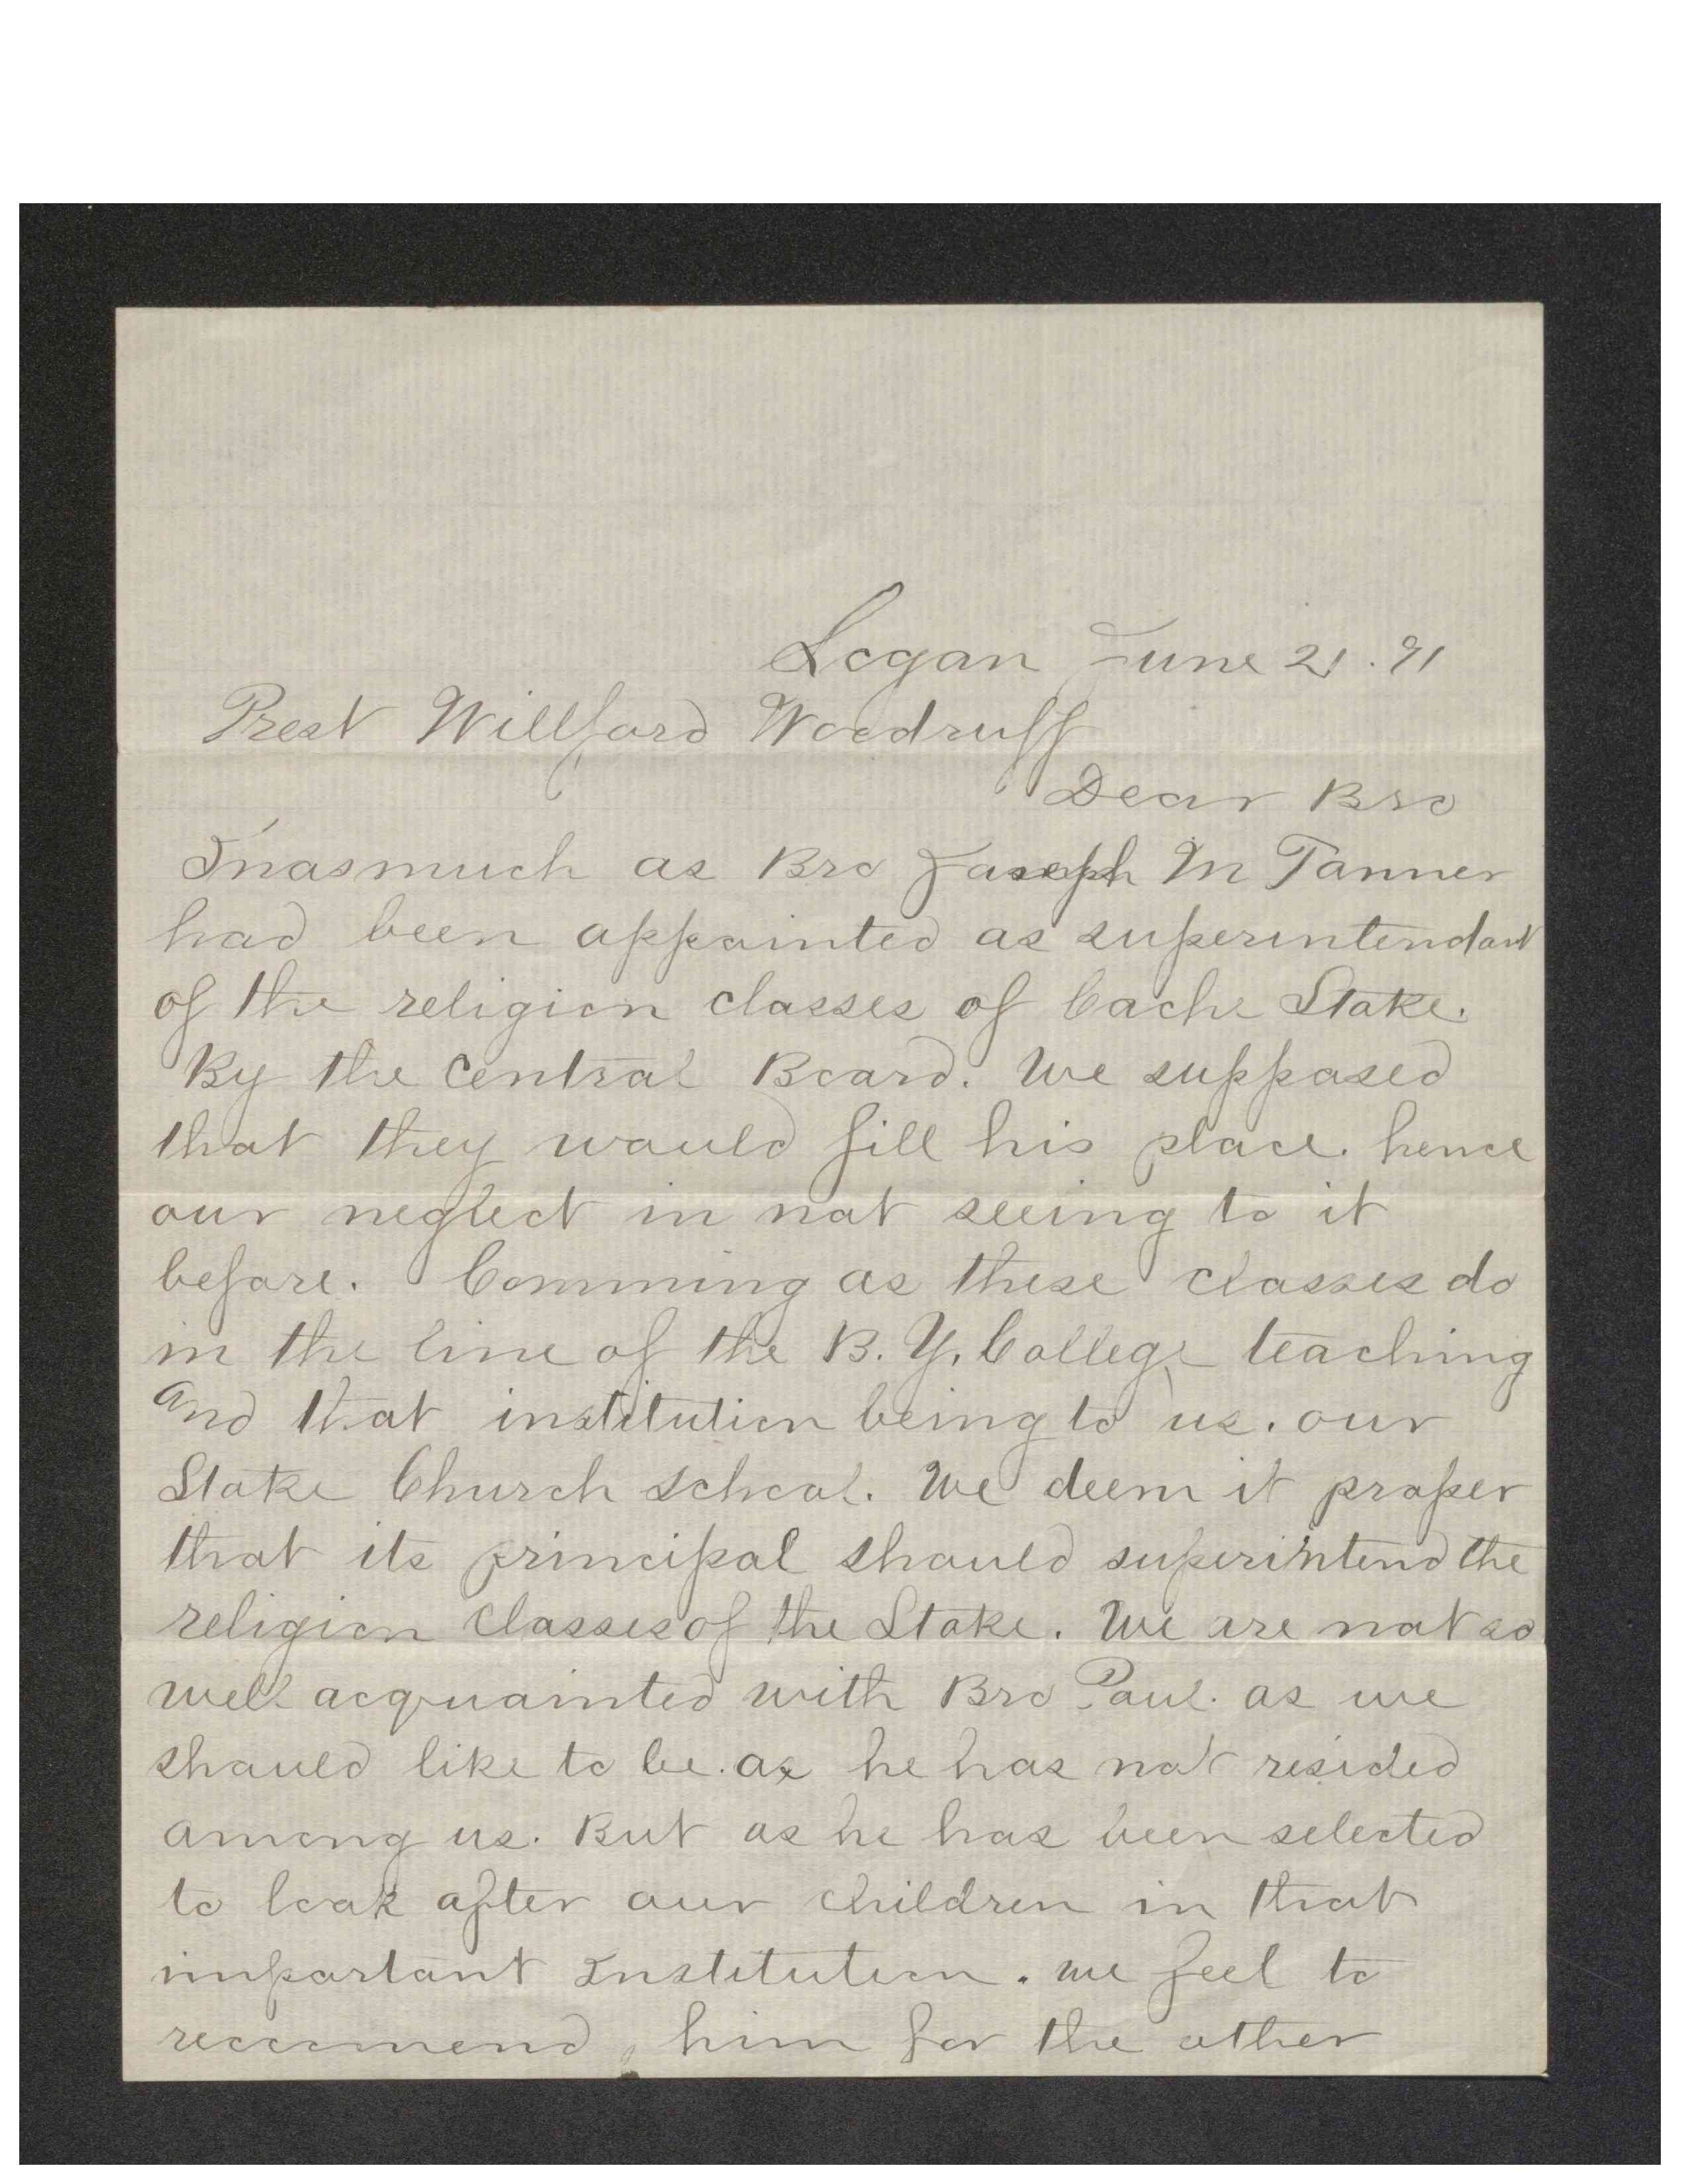 Logan June 21. 91
Prest Willford Woodruff
Dear Bro
Inasmuch as Bro Joseph M Tanner
had been appointed as superintendant
of the religion classes of Cache Stake.
By the Central Board. We supposed
that they would fill his place. hence
our neglect in not seeing to it
before. Comming as these classes do
in the line of the B. Y. College teaching
and that institution being to us. our
Stake Church School. We deem it proper
that its principal should superintend the
religion classes of the Stake. We are not so
well acquainted with Bro Paul. as we
should like to be. as he has not resided
among us. But as he has been selected
to look after our children in that
important Institution. we feel to
reccomend him for the other